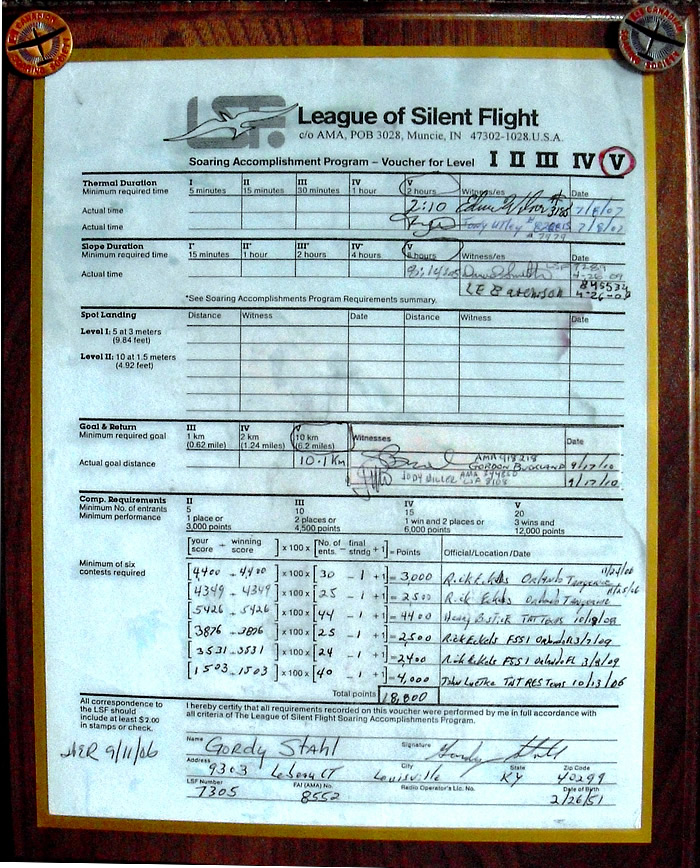 LSF.
League of Silent Flight
c/o AMA, POB 3028, Muncie, IN 47302-1028.U.S.A.
Soaring Accomplishment Program – Voucher for Level I II III IV V
Thermal Duration I II III IV V
Minimum required time 5 minutes 15 minutes 30 minutes 1 hour 2 hours Witness/es Date
Actual time 2:10 7/8/07
Actual time 7/8/07
Slope Duration I* II* III* IV* V
Minimum required time 15 minutes 1 hour 2 hours 4 hours 8 hours Witness/es
Actual time
*See Soaring Accomplishments Program Requirements summary.
Spot Landing Distance Witness Date Distance Witness Date
Level I: 5 at 3 meters
(9.84 feet)
Level II: 10 at 1.5 meters
(4.92 feet)
Goal & Return III IV V
Minimum required goal 1 km 2 km 10 km Witnesses Date
(0.62 mile) (1.24 miles) (6.2 miles)
Actual goal distance 10.1 Km GORDON 9/17/10
JODY MILLER 9/17/10
Comp. Requirements II III IV V
Minimum No. of entrants 5 10 15 20
Minimum performance 1 place or 2 places or 1 win and 2 places or 3 wins and
3,000 points 4,500 points 6,000 points 12,000 points
[your score – winning score] x 100 x [No. of ents. – final stndg +1] = Points Official/Location/Date
Minimum of six
contests required
4400 - 4400 x 100 x 30 - 1 +1 = 3,000 Rick Eckels Orlando Tangerine 11/24/06
4349 - 4349 x 100 x 25 - 1 +1 = 2500 Rick Eckels Orlando Tangerine 11/25/06
5426 - 5426 x 100 x 44 - 1 +1 = 4400 TNT Texas 10/18/08
3876 - 3876 x 100 x 25 - 1 +1 = 2,500 Rick Eckels FSS1 Orlando 3/7/09
3531 - 3531 x 100 x 24 - 1 +1 = 2400 Rick Eckels FSS1 Orlando FL 3/8/09
1503 - 1503 x 100 x 40 - 1 +1 = 4,000 TNT RES Texas 10/13/06
Total points 18,800
All correspondence to
the LSF should
include at least $2.00
in stamps or check.
I hereby certify that all requirements recorded on this voucher were performed by me in full accordance with
all criteria of The League of Silent Flight Soaring Accomplishments Program.
9/11/06
Name Gordy Stahl Signature Gordy Stahl
Address 9303 CT City Louisville State KY Zip Code 40299
LSF Number 7305 FAI (AMA) No. 8552 Radio Operator's Lic. No. Date of Birth 2/26/51